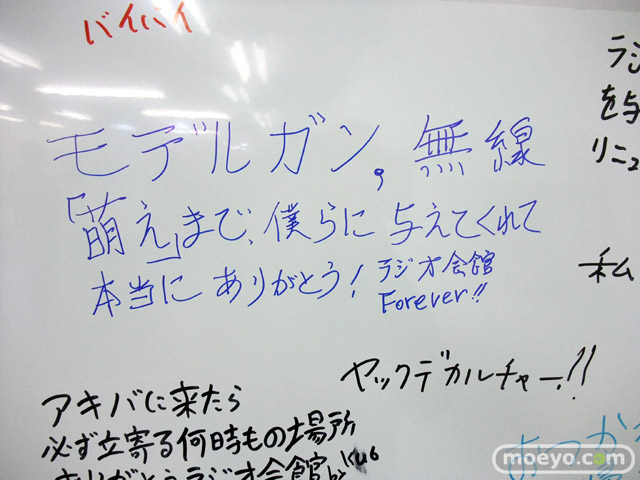 バイバイ
ラジ
を与
リニュ
モデルガン,無線
「萌え」まで、僕らに与えてくれて
本当にありがとう!ラジオ会館
Forever!!
私
ヤックデカルチャー!!
アキバに来たら
必ず立寄る何時もの場所
ありがとうラジオ会館
moeyo.com